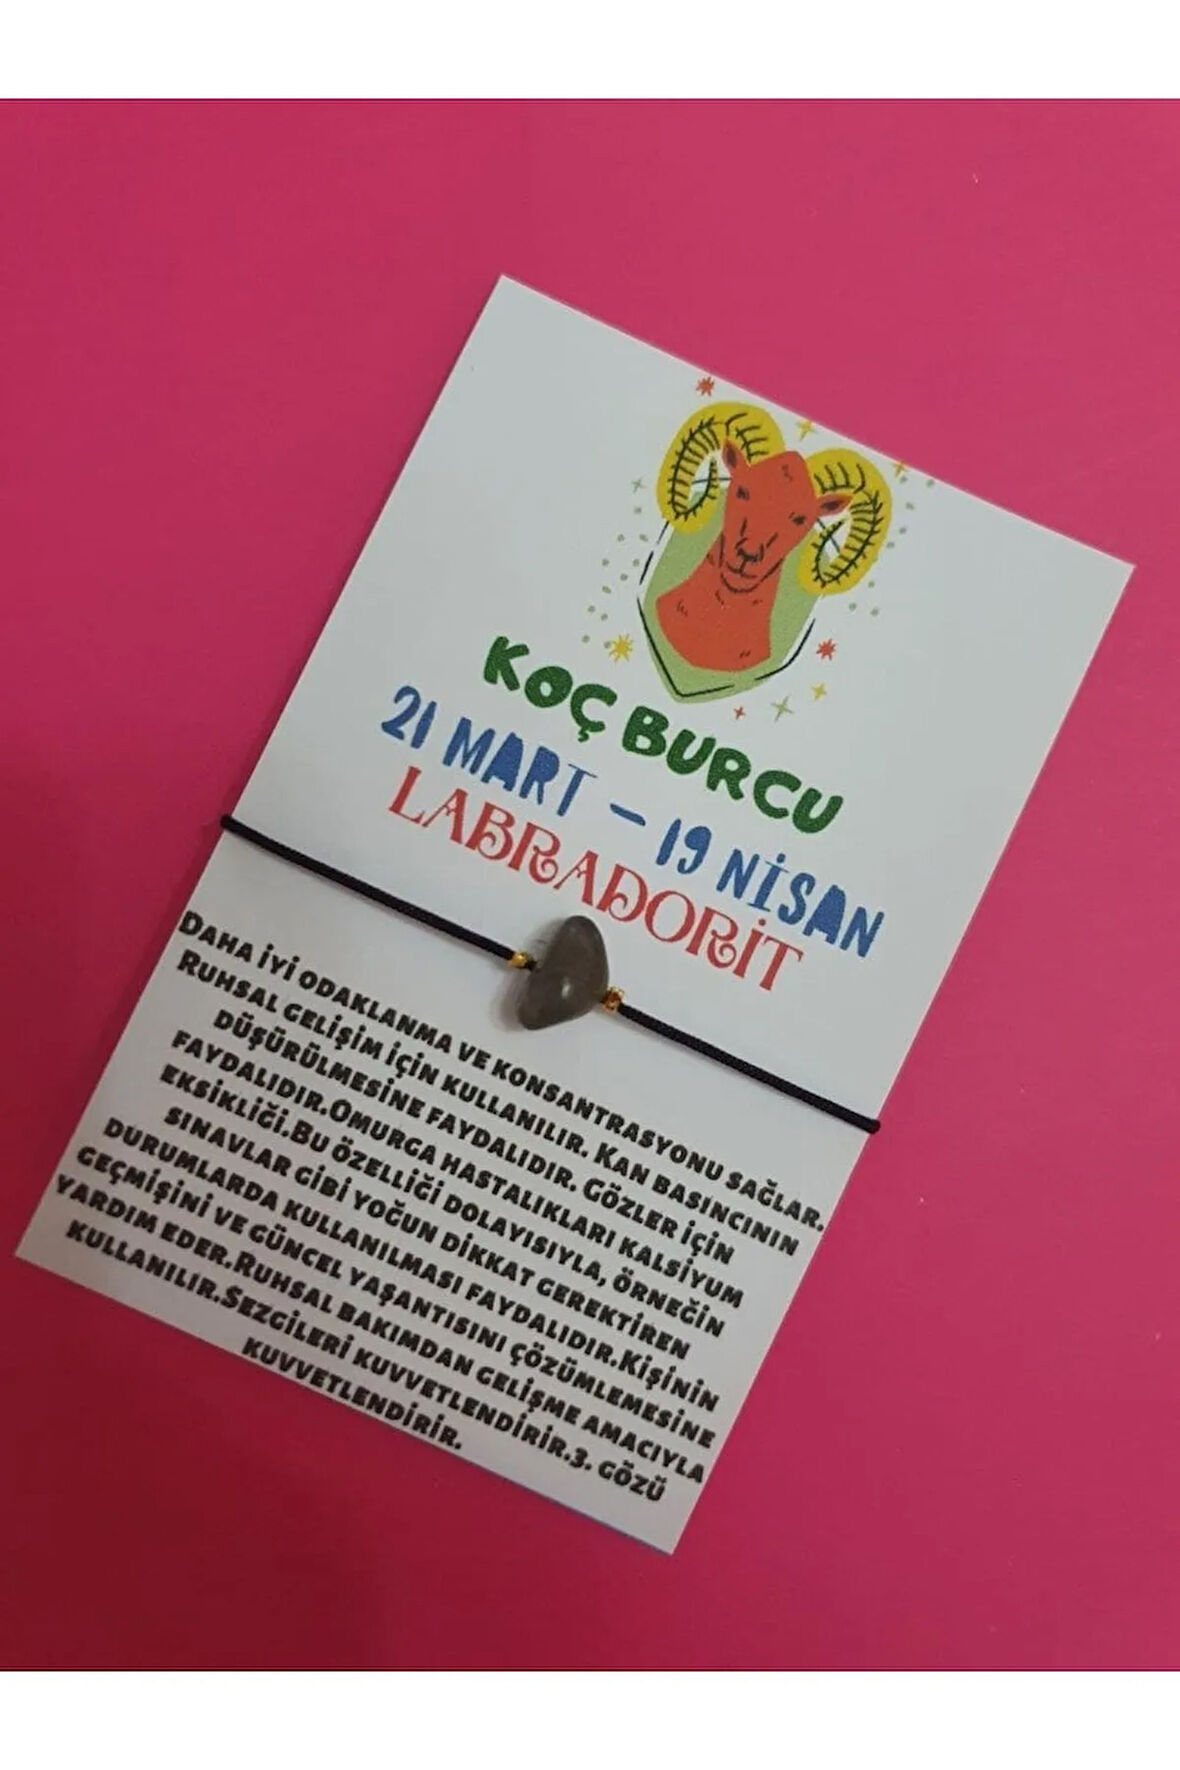 KOÇ BURCU
21 MART - 19 NİSAN
LABRADORİT
DAHA İYİ ODAKLANMA VE KONSANTRASYONU SAĞLAR.
RUHSAL GELİŞİM İÇİN KULLANILIR. KAN BASINCININ
DÜŞÜRÜLMESİNE FAYDALIDIR. GÖZLER İÇİN
FAYDALIDIR.OMURGA HASTALIKLARI KALSİYUM
EKSİKLİĞİ.BU ÖZELLİĞİ DOLAYISIYLA, ÖRNEĞİN
SINAVLAR GİBİ YOĞUN DİKKAT GEREKTİREN
DURUMLARDA KULLANILMASI FAYDALIDIR.KİŞİNİN
GEÇMİŞİNİ VE GÜNCEL YAŞANTISINI ÇÖZÜMLEMESİNE
YARDIM EDER.RUHSAL BAKIMDAN GELİŞME AMACIYLA
KULLANILIR.SEZGİLERİ KUVVETLENDİRİR.3. GÖZÜ
KUVVETLENDİRİR.